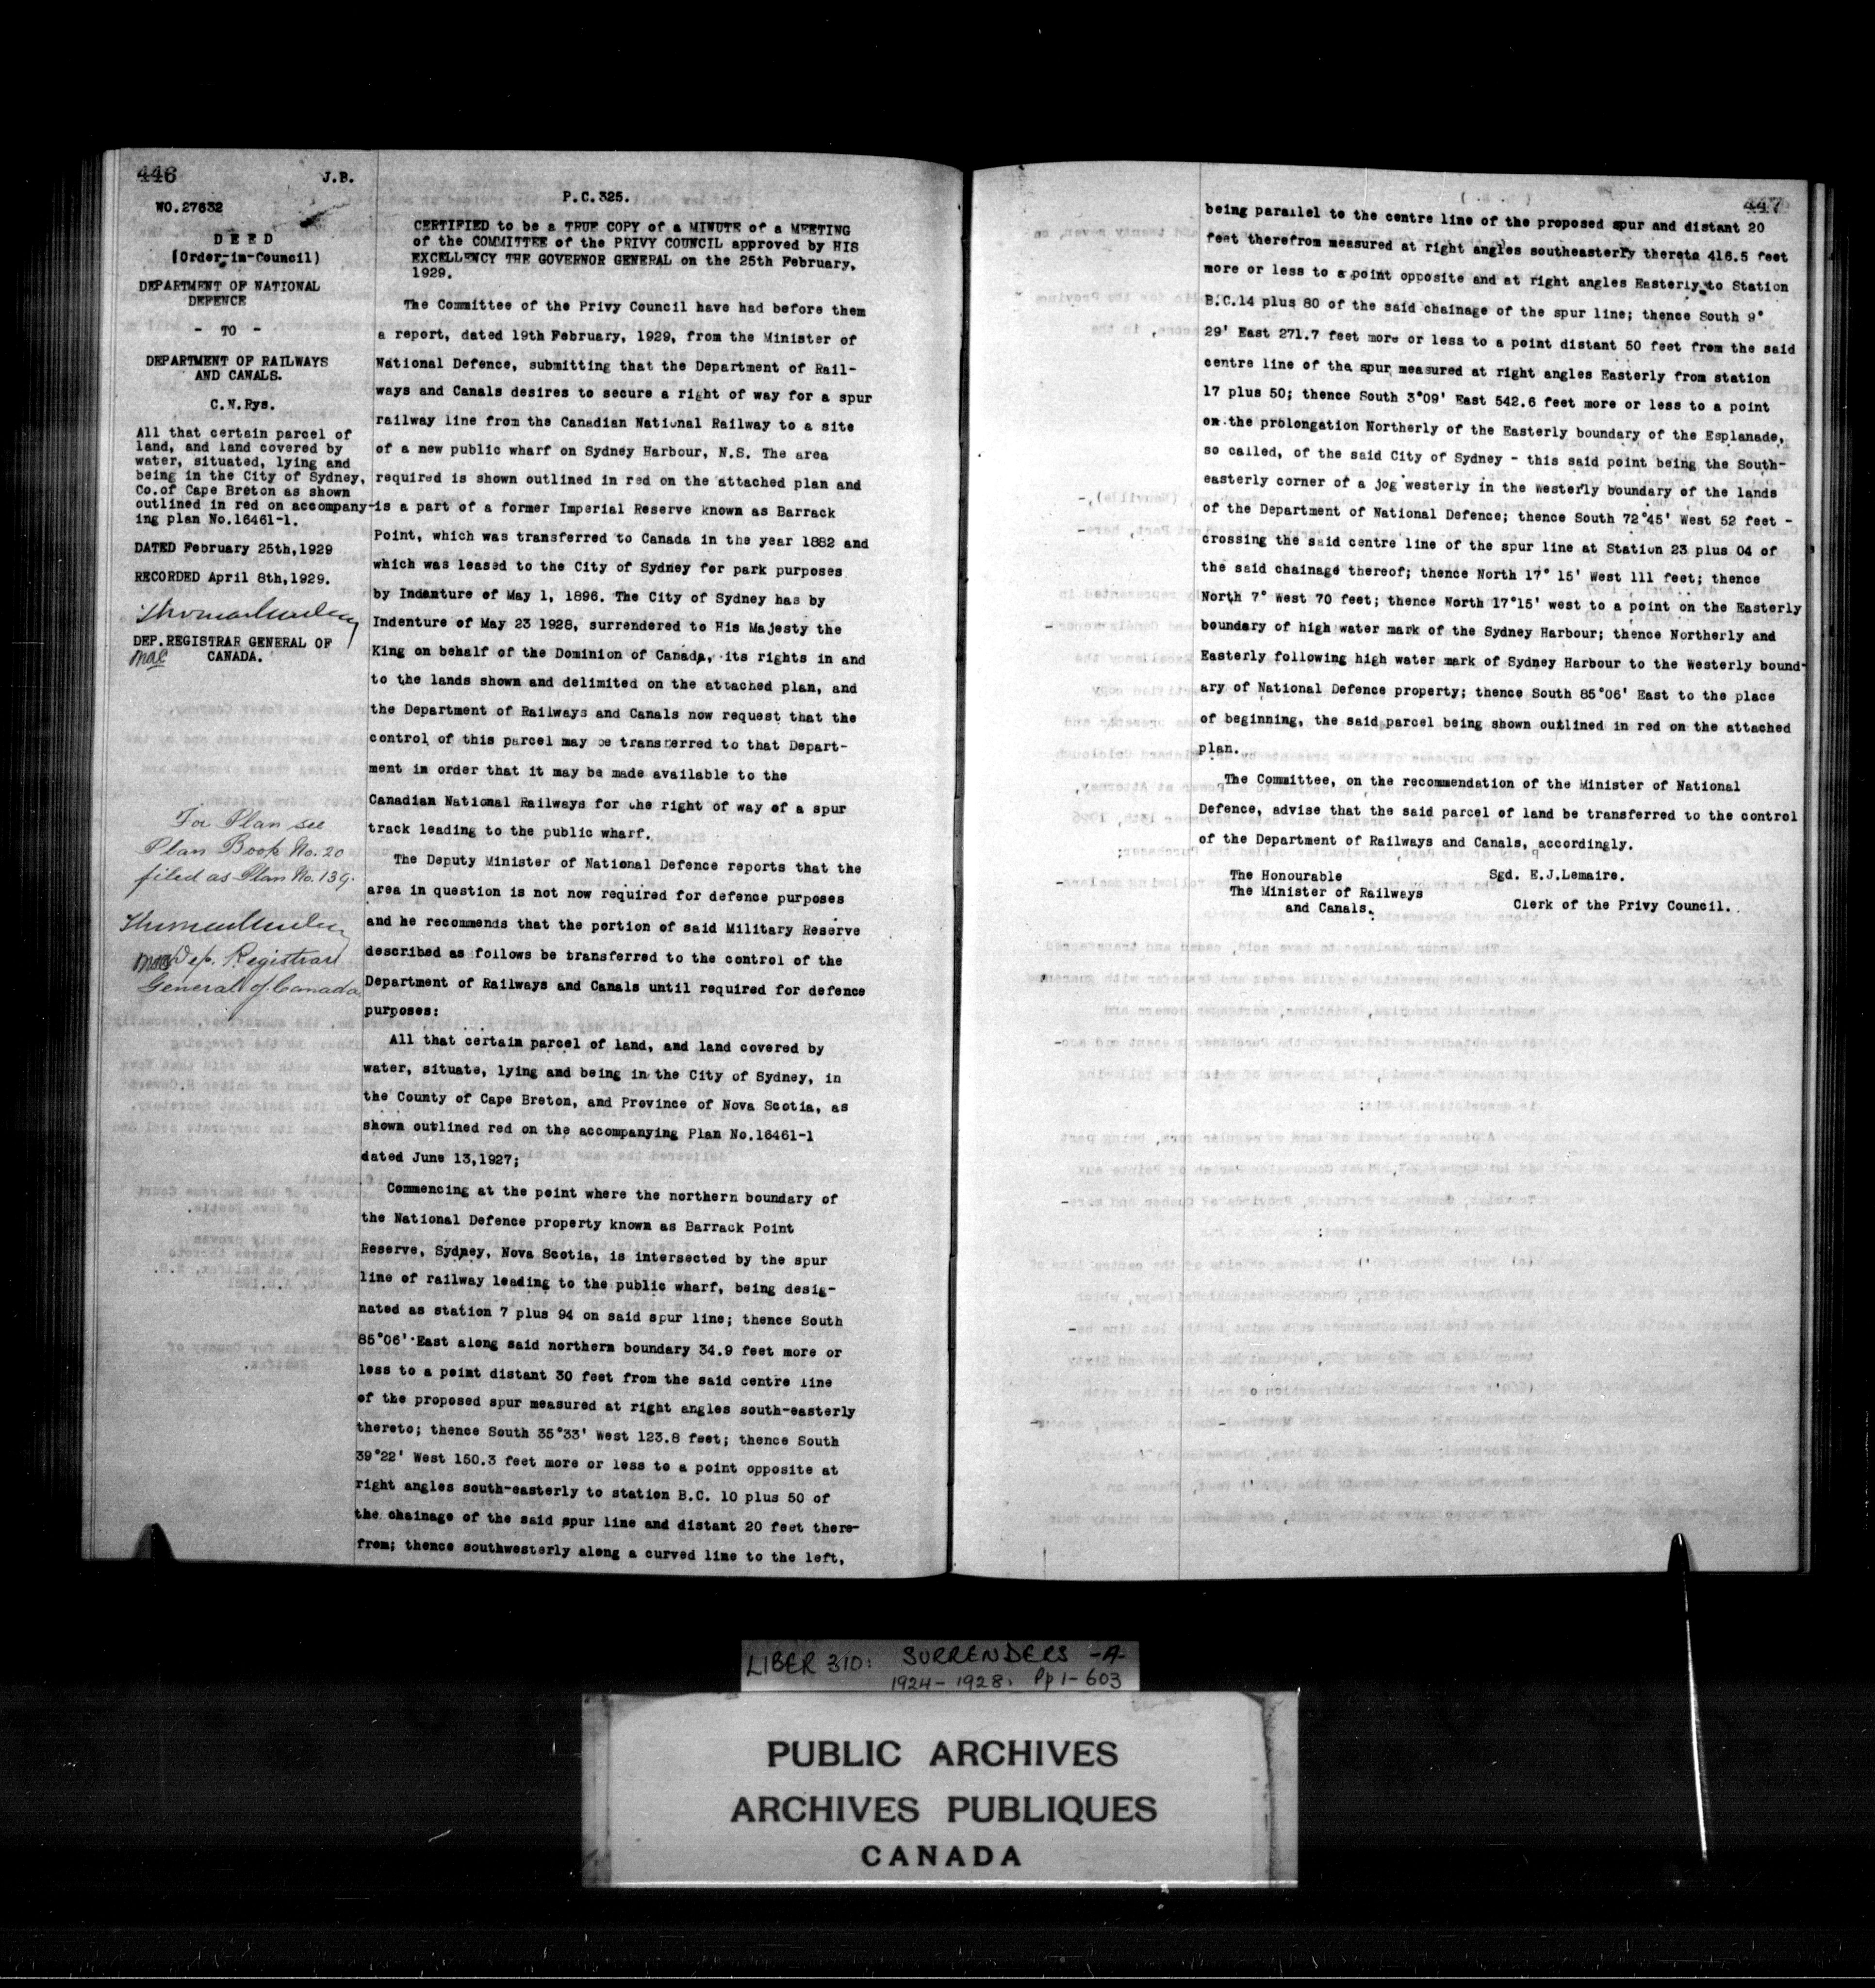 446
J.B.
WO.27632
D E E D
(Order-in-Council)
DEPARTMENT OF NATIONAL
DEFENCE
- TO -
DEPARTMENT OF RAILWAYS
AND CANALS.
C.N.Rys.
All that certain parcel of
land, and land covered by
water, situated, lying and
being in the City of Sydney,
Co.of Cape Breton as shown
outlined in red on accompany-
ing plan No.16461-1.
DATED February 25th,1929
RECORDED April 8th,1929.
DEP.REGISTRAR GENERAL OF
CANADA.
For Plan see
Plan Book No. 20
filed as Plan No. 139.
Dep. Registrar
General of Canada
P.C.325.
CERTIFIED to be a TRUE COPY of a MINUTE of a MEETING
of the COMMITTEE of the PRIVY COUNCIL approved by HIS
EXCELLENCY THE GOVERNOR GENERAL on the 25th February,
1929.
The Committee of the Privy Council have had before them
a report, dated 19th February, 1929, from the Minister of
National Defence, submitting that the Department of Rail-
ways and Canals desires to secure a right of way for a spur
railway line from the Canadian National Railway to a site
of a new public wharf on Sydney Harbour, N.S. The area
required is shown outlined in red on the attached plan and
is a part of a former Imperial Reserve known as Barrack
Point, which was transferred to Canada in the year 1882 and
which was leased to the City of Sydney for park purposes
by Indenture of May 1, 1896. The City of Sydney has by
Indenture of May 23 1928, surrendered to His Majesty the
King on behalf of the Dominion of Canada, its rights in and
to the lands shown and delimited on the attached plan, and
the Department of Railways and Canals now request that the
control of this parcel may be transferred to that Depart-
ment in order that it may be made available to the
Canadian National Railways for the right of way of a spur
track leading to the public wharf.
The Deputy Minister of National Defence reports that the
area in question is not now required for defence purposes
and he recommends that the portion of said Military Reserve
described as follows be transferred to the control of the
Department of Railways and Canals until required for defence
purposes:
All that certain parcel of land, and land covered by
water, situate, lying and being in the City of Sydney, in
the County of Cape Breton, and Province of Nova Scotia, as
shown outlined red on the accompanying Plan No.16461-1
dated June 13,1927;
Commencing at the point where the northern boundary of
the National Defence property known as Barrack Point
Reserve, Sydney, Nova Scotia, is intersected by the spur
line of railway leading to the public wharf, being desig-
nated as station 7 plus 94 on said spur line; thence South
85°06' East along said northern boundary 34.9 feet more or
less to a point distant 30 feet from the said centre line
of the proposed spur measured at right angles south-easterly
thereto; thence South 35°33' West 123.8 feet; thence South
39°22' West 150.3 feet more or less to a point opposite at
right angles south-easterly to station B.C. 10 plus 50 of
the chainage of the said spur line and distant 20 feet there-
from; thence southwesterly along a curved line to the left,
447
being parallel to the centre line of the proposed spur and distant 20
feet therefrom measured at right angles southeasterly thereto 416.5 feet
more or less to a point opposite and at right angles Easterly to Station
B.C.14 plus 80 of the said chainage of the spur line; thence South 9°
29' East 271.7 feet more or less to a point distant 50 feet from the said
centre line of the spur measured at right angles Easterly from station
17 plus 50; thence South 3°09' East 542.6 feet more or less to a point
on the prolongation Northerly of the Easterly boundary of the Esplanade,
so called, of the said City of Sydney - this said point being the South-
easterly corner of a jog westerly in the Westerly boundary of the lands
of the Department of National Defence; thence South 72°45' West 52 feet -
crossing the said centre line of the spur line at Station 23 plus 04 of
the said chainage thereof; thence North 17° 15' West 111 feet; thence
North 7° West 70 feet; thence North 17°15' west to a point on the Easterly
boundary of high water mark of the Sydney Harbour; thence Northerly and
Easterly following high water mark of Sydney Harbour to the Westerly bound-
ary of National Defence property; thence South 85°06' East to the place
of beginning, the said parcel being shown outlined in red on the attached
plan.
The Committee, on the recommendation of the Minister of National
Defence, advise that the said parcel of land be transferred to the control
of the Department of Railways and Canals, accordingly.
The Honourable
The Minister of Railways
and Canals.
Sgd. E.J.Lemaire.
Clerk of the Privy Council.
LIBER 310: SURRENDERS -A-
1924-1928. Pp 1-603
PUBLIC ARCHIVES
ARCHIVES PUBLIQUES
CANADA